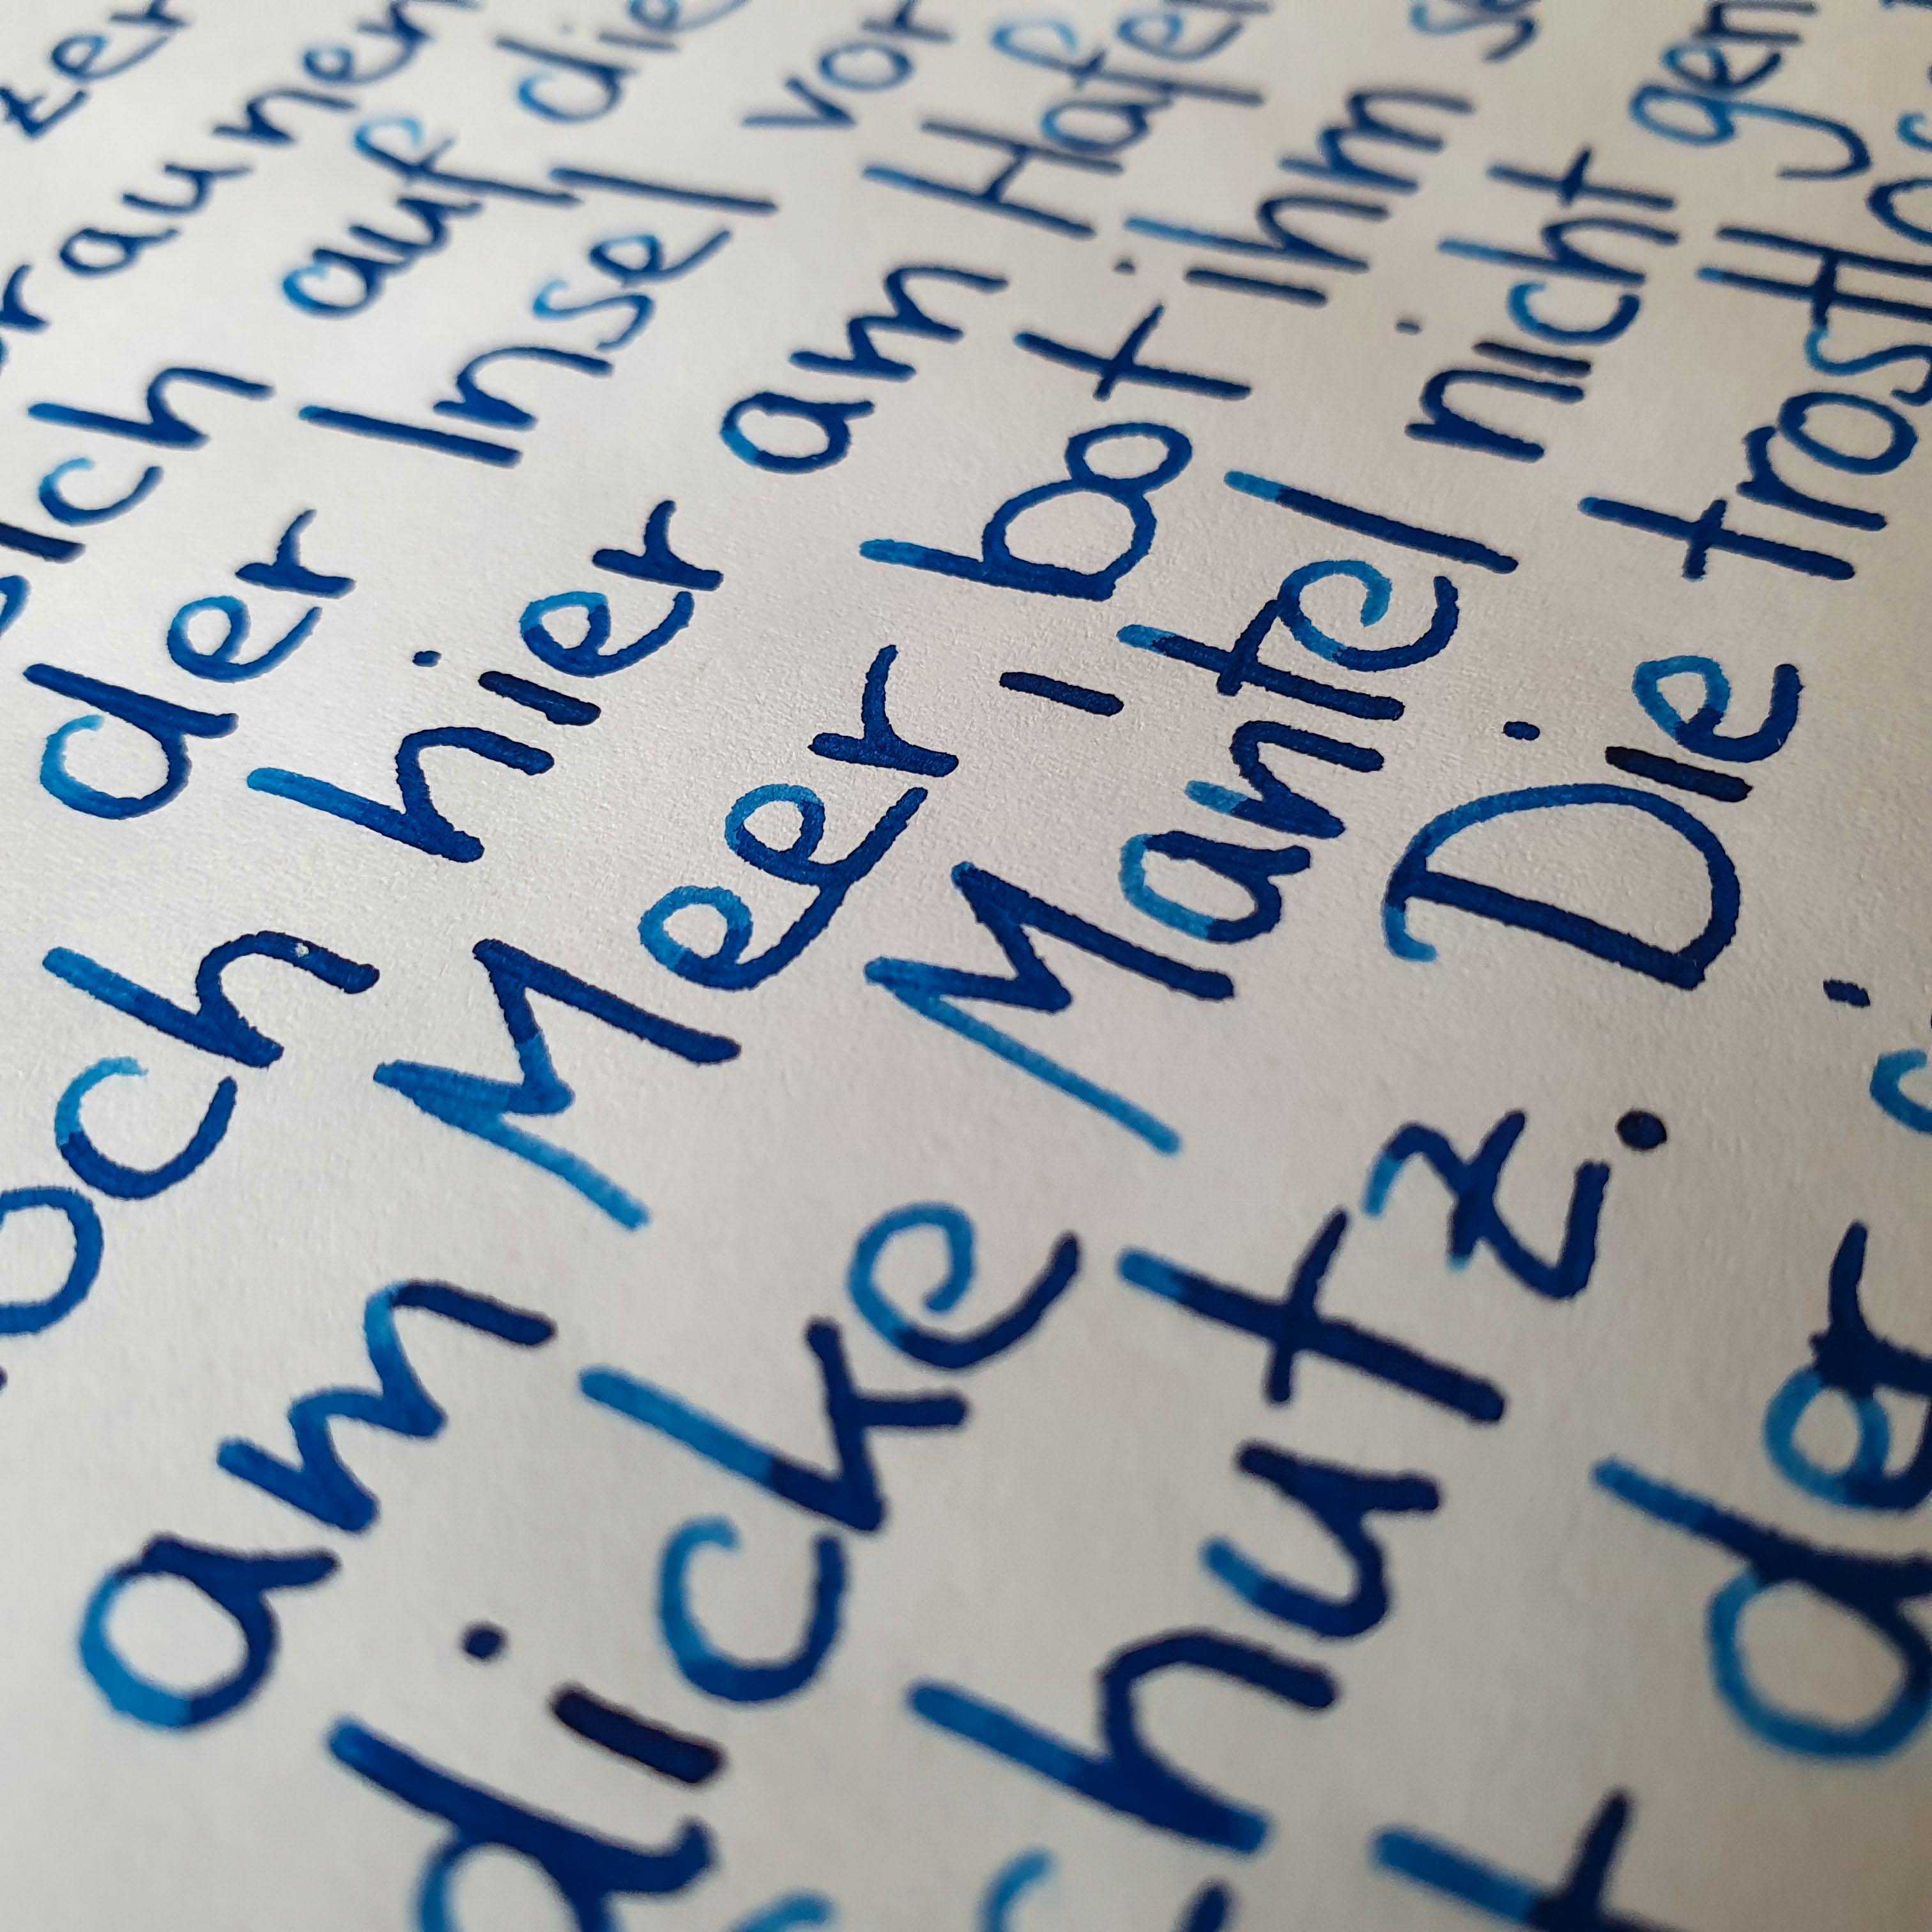 zer
raunen
ich auf die
der Insel vor
och hier am Hafe
am Meer - bot ihm se
dicke Mantel nicht gen
hutz. Die trostlos
t der